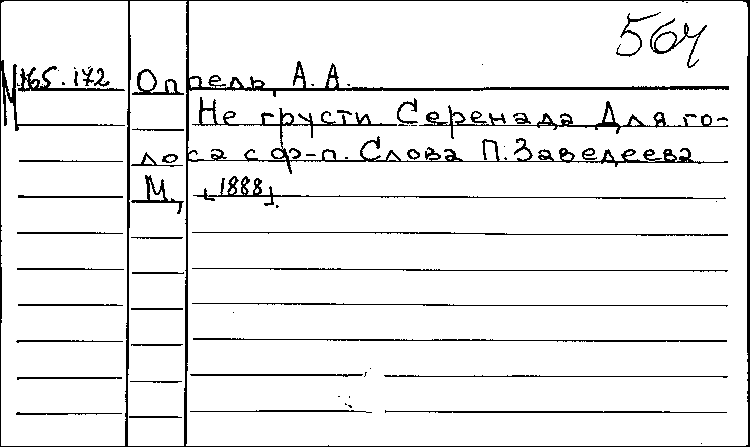 564
М 165.172 Оппель, А. А.
Не грусти. Серенада. Для го-
лоса с ф-п. Слова П. Заведеева
М., [1888].